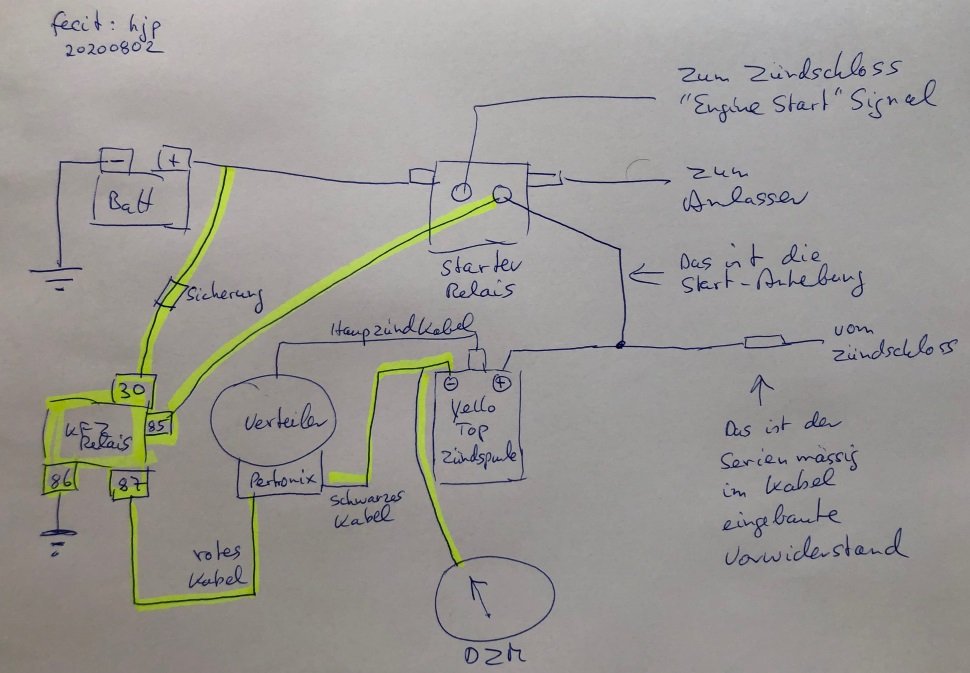 fecit: hjp
20200802
Zum Zündschloss
"Engine Start" Signal
- +
Batt
zum
Anlasser
Starter
Relais
Das ist die
Start-Anhebung
Sicherung
Haupzündkabel
vom
Zündschloss
30
KFZ
Relais
85
86
87
Verteiler
Pertronix
- +
Yello
Top
Zündspule
schwarzes
Kabel
rotes
Kabel
Das ist der
Serienmässig
im Kabel
eingebaute
Vorwiderstand
DZM